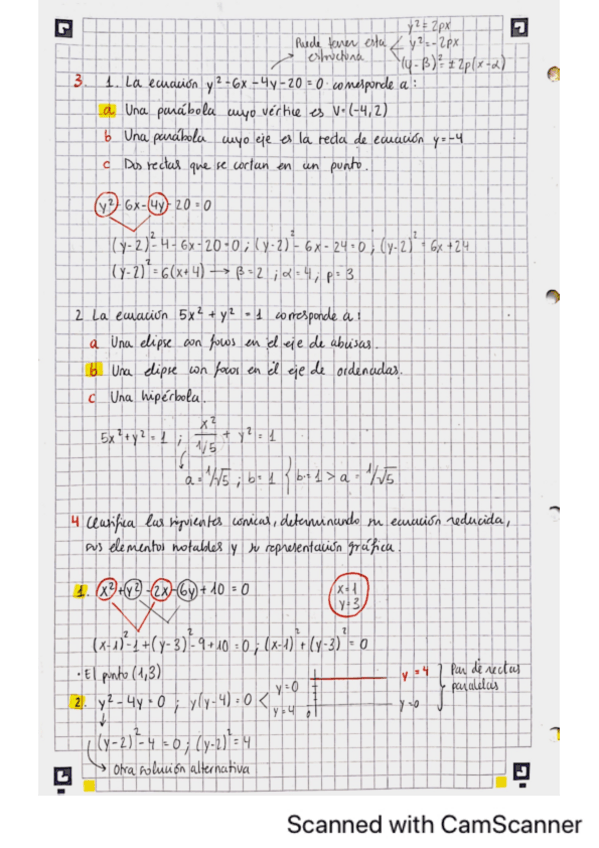 y² = 2px
Puede tener esta y² = -2px
estructura (y - β)² = ± 2p(x - α)
3. 1. La ecuación y² - 6x - 4y - 20 = 0 corresponde a:
a Una parábola cuyo vértice es V = (-4, 2)
b Una parábola cuyo eje es la recta de ecuación y = -4
c Dos rectas que se cortan en un punto.
y² - 6x - 4y - 20 = 0
(y - 2)² - 4 - 6x - 20 = 0 ; (y - 2)² - 6x - 24 = 0 ; (y - 2)² = 6x + 24
(y - 2)² = 6(x + 4) → β = 2 ; α = 4 ; p = 3
2 La ecuación 5x² + y² = 1 corresponde a:
a Una elipse con focos en el eje de abcisas.
b Una elipse con focos en el eje de ordenadas.
c Una hipérbola.
5x² + y² = 1 ; x²/1/5 + y² = 1
a = 1/√5 ; b = 1 { b = 1 > a = 1/√5
4 Clasifica las siguientes cónicas, determinando su ecuación reducida,
sus elementos notables y su representación gráfica.
1. x² + y² - 2x - 6y + 10 = 0 x = 1
y = 3
(x - 1)² - 1 + (y - 3)² - 9 + 10 = 0 ; (x - 1)² + (y - 3)² = 0
· El punto (1, 3)
2. y² - 4y = 0 ; y(y - 4) = 0 < y = 0 y = 4 } Par de rectas
y = 4 0 y = 0 paralelas
(y - 2)² - 4 = 0 ; (y - 2)² = 4
→ Otra solución alternativa
Scanned with CamScanner